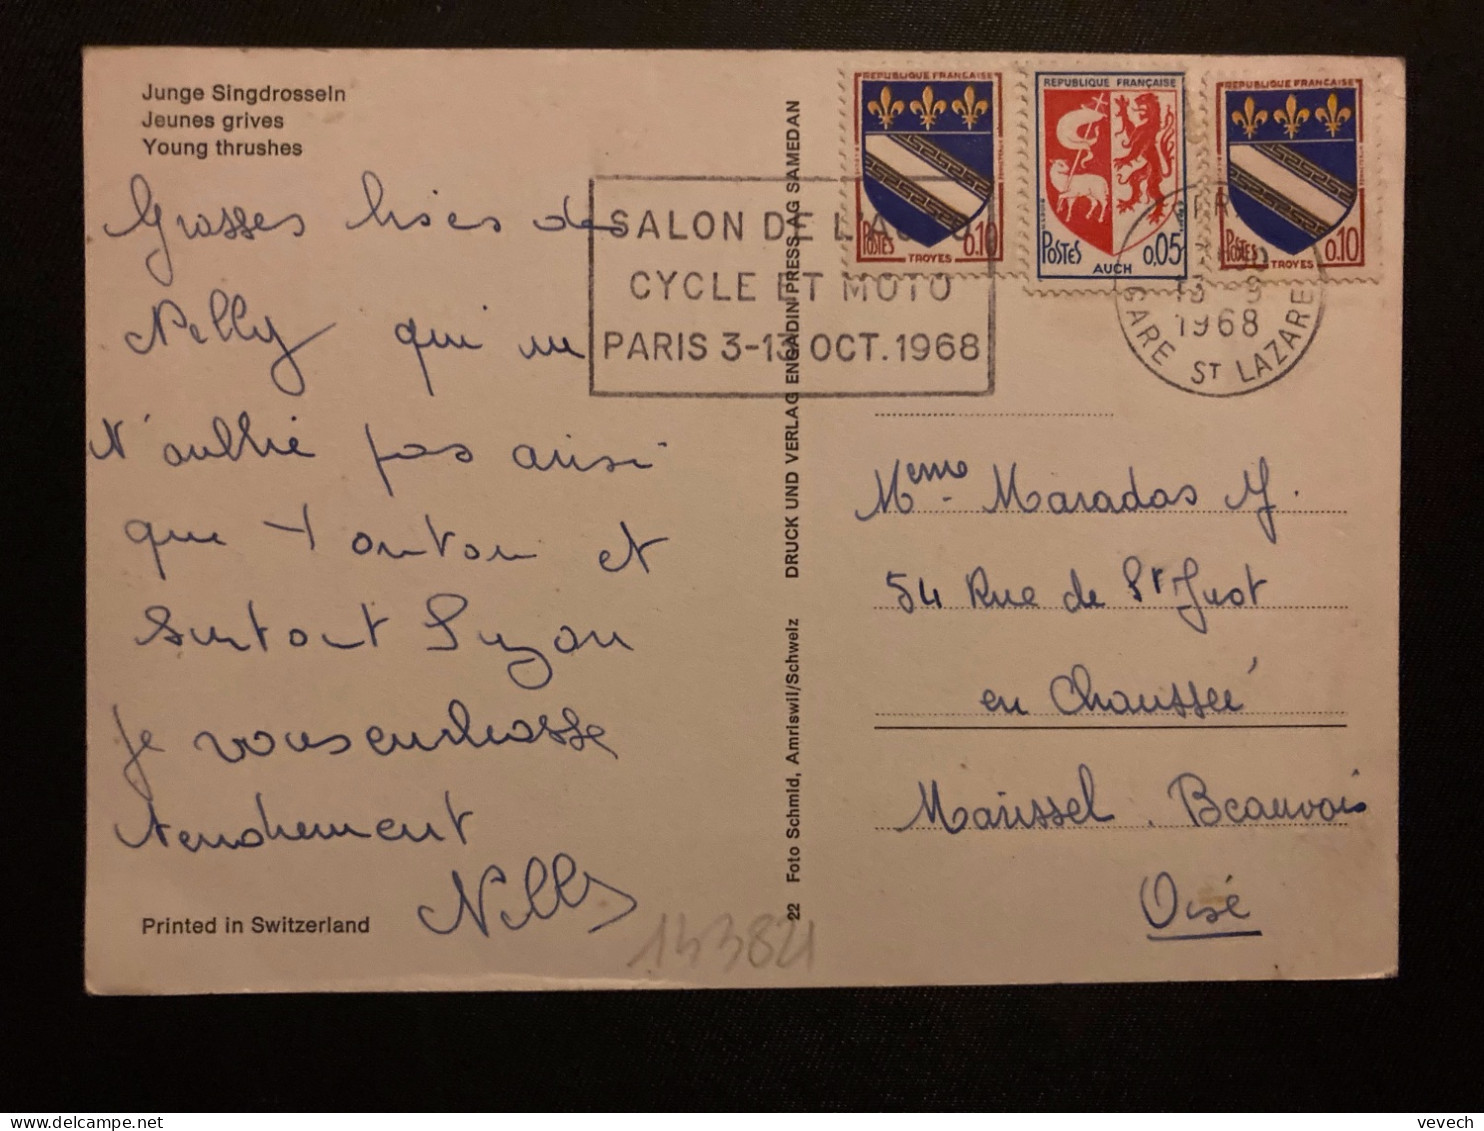 Junge Singdrosseln
Jeunes grives
Young thrushes
Grosses bises de
Nelly qui ne
n'oublie pas ainsi
que Tonton et
surtout Suzon
je vous embrasse
tendrement
Nelly
Printed in Switzerland
143821
22 Foto Schmid, Amriswil/Schweiz DRUCK UND VERLAG ENGADIN PRESS AG SAMEDAN
SALON DE L'AUTO
CYCLE ET MOTO
PARIS 3-13 OCT. 1968
REPUBLIQUE FRANCAISE
POSTES 0.10
TROYES
REPUBLIQUE FRANÇAISE
POSTES 0,05
AUCH
REPUBLIQUE FRANCAISE
POSTES 0.10
TROYES
13 - 9
1968
GARE ST LAZARE
Meme Maradas J.
54 Rue de St Just
en Chaussée
Marissel. Beauvais
Oise
vevech